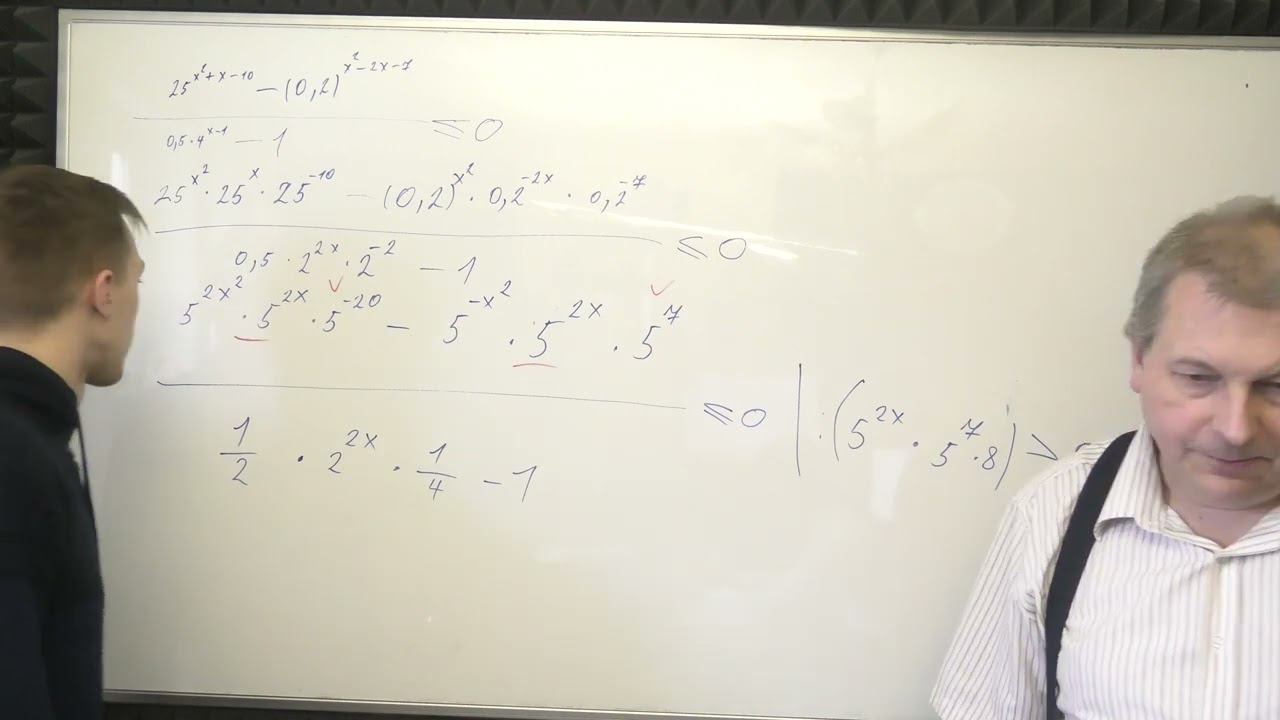 25^{x^2+x-10} - (0,2)^{x^2-2x-7}
/ 0,5·4^{x-1} - 1 ≤ 0
25^{x^2} · 25^x · 25^{-10} - (0,2)^{x^2} · 0,2^{-2x} · 0,2^{-7}
/ 0,5 · 2^{2x} · 2^{-2} - 1 ≤ 0
5^{2x^2} · 5^{2x} · 5^{-20} - 5^{-x^2} · 5^{2x} · 5^7
/ \frac{1}{2} · 2^{2x} · \frac{1}{4} - 1 ≤ 0 | : (5^{2x} · 5^7 · 8) >